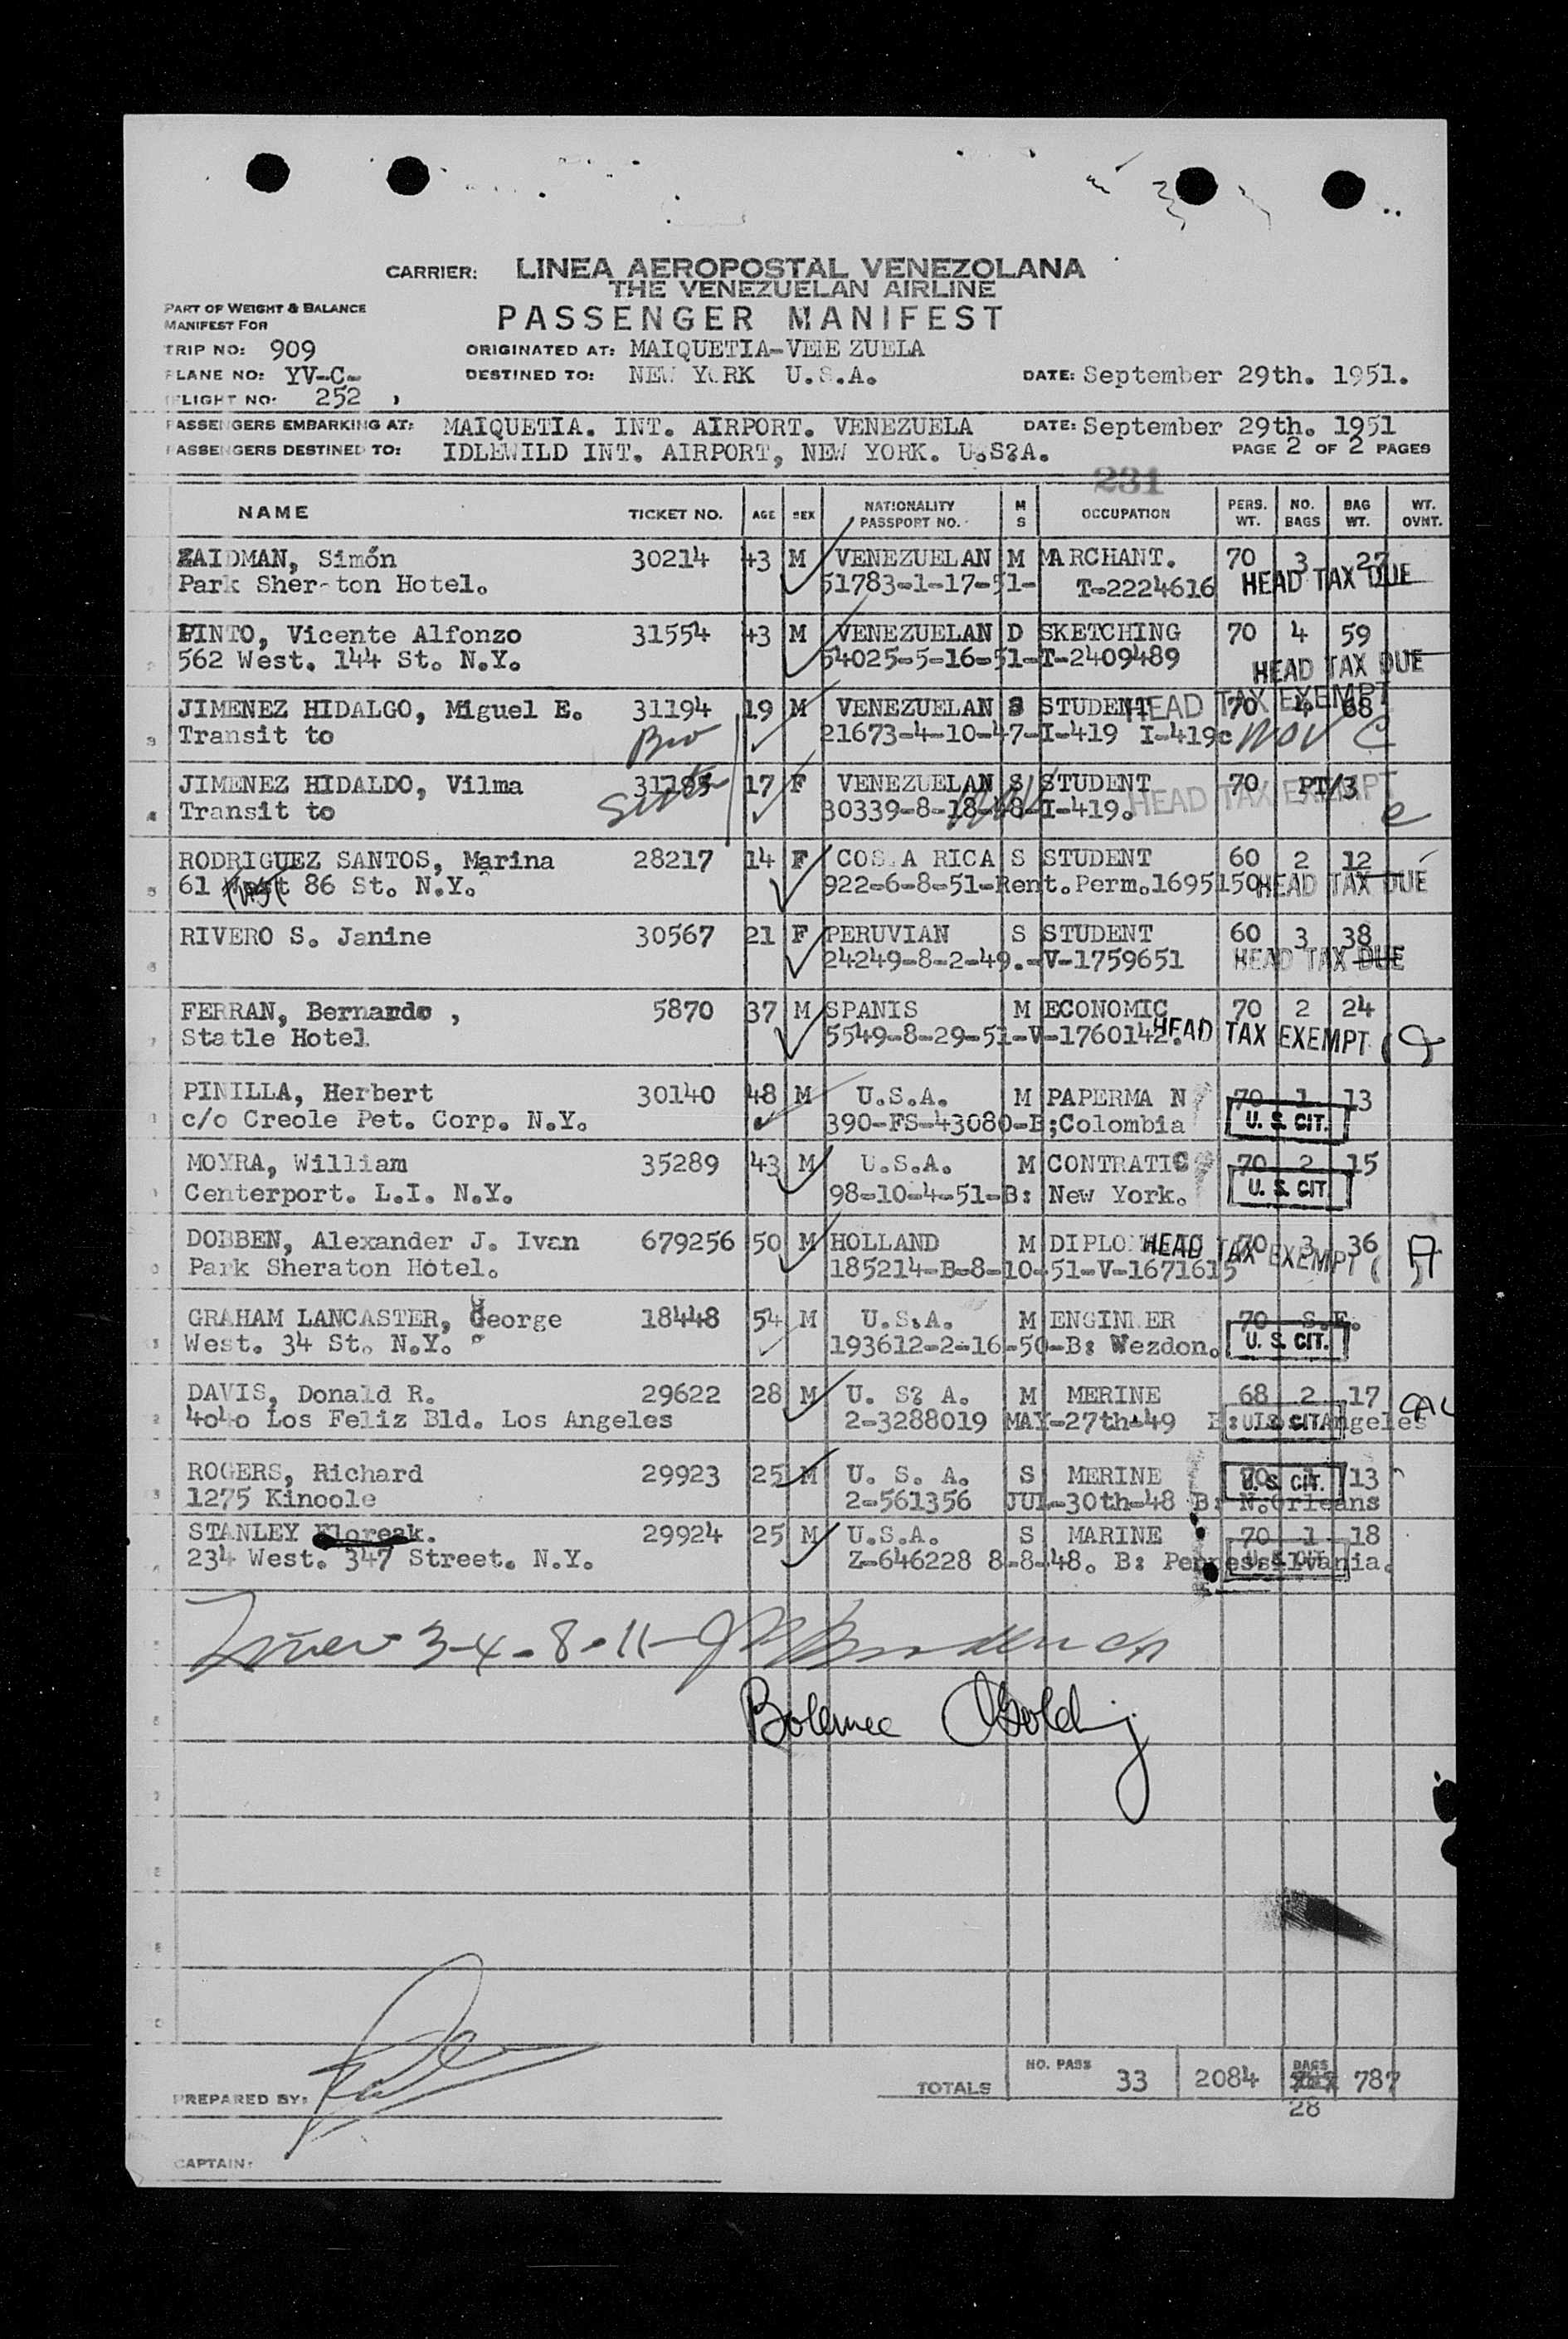 CARRIER: LINEA AEROPOSTAL VENEZOLANA
THE VENEZUELAN AIRLINE
PART OF WEIGHT & BALANCE
MANIFEST FOR
PASSENGER MANIFEST
TRIP NO: 909 ORIGINATED AT: MAIQUETIA-VENE ZUELA
PLANE NO: YV-C- DESTINED TO: NEW YORK U.S.A. DATE: September 29th. 1951.
FLIGHT NO: 252
PASSENGERS EMBARKING AT: MAIQUETIA. INT. AIRPORT. VENEZUELA DATE: September 29th. 1951
PASSENGERS DESTINED TO: IDLEWILD INT. AIRPORT, NEW YORK. U.S?A. PAGE 2 OF 2 PAGES
231
NAME TICKET NO. AGE SEX NATIONALITY PASSPORT NO. M S OCCUPATION PERS. WT. NO. BAGS BAG WT. WT. OVNT.
ZAIDMAN, Simón 30214 43 M VENEZUELAN M MARCHANT. 70 3 27
Park Sher-ton Hotel. 51783-1-17-51- T-2224616 HEAD TAX DUE
PINTO, Vicente Alfonzo 31554 43 M VENEZUELAN D SKETCHING 70 4 59
562 West. 144 St. N.Y. 54025-5-16-51-T-2409489 HEAD TAX DUE
JIMENEZ HIDALGO, Miguel E. 31194 19 M VENEZUELAN S STUDENT HEAD TAX EXEMPT 70 4 68
Transit to Bro 21673-4-10-47-I-419 I-419c
JIMENEZ HIDALDO, Vilma 31195 17 F VENEZUELAN S STUDENT 70 PT/3
Transit to Sister 30339-8-18-48-I-419. HEAD TAX EXEMPT
RODRIGUEZ SANTOS, Marina 28217 14 F COS A RICA S STUDENT 60 2 12
61 West 86 St. N.Y. 922-6-8-51-Rent.Perm.1695150 HEAD TAX DUE
RIVERO S. Janine 30567 21 F PERUVIAN S STUDENT 60 3 38
24249-8-2-49.-V-1759651 HEAD TAX DUE
FERRAN, Bernardo , 5870 37 M SPANIS M ECONOMIC 70 2 24
Statle Hotel 5549-8-29-51-V-1760142. HEAD TAX EXEMPT
PINILLA, Herbert 30140 48 M U.S.A. M PAPERMA N 70 1 13
c/o Creole Pet. Corp. N.Y. 390-FS-43080-B;Colombia U. S. CIT.
MOYRA, William 35289 43 M U.S.A. M CONTRATIC 70 2 15
Centerport. L.I. N.Y. 98-10-4-51-B: New York. U. S. CIT.
DOBBEN, Alexander J. Ivan 679256 50 M HOLLAND M DIPLO HEAD TAX EXEMPT 70 3 36 A
Park Sheraton Hotel. 185214-B-8-10-51-V-1671615
GRAHAM LANCASTER, George 18448 54 M U.S.A. M ENGINEER 70 S.E.
West. 34 St. N.Y. 193612-2-16-50-B: Wezdon. U. S. CIT.
DAVIS, Donald R. 29622 28 M U. S? A. M MERINE 68 2 17
4040 Los Feliz Bld. Los Angeles 2-3288019 MAY-27th-49 B: Los Angeles U. S. CIT.
ROGERS, Richard 29923 25 M U. S. A. S MERINE 70 1 13 U. S. CIT.
1275 Kinoole 2-561356 JUL-30th-48 B: N.Orleans
STANLEY Floreak. 29924 25 M U.S.A. S MARINE 70 1 18
234 West. 347 Street. N.Y. Z-646228 8-8-48. B: Pennessilvania. U. S. CIT.
Lines 3-4-8-11-
Golding
NO. PASS BAGS
TOTALS 33 2084 787
28
PREPARED BY:
CAPTAIN: